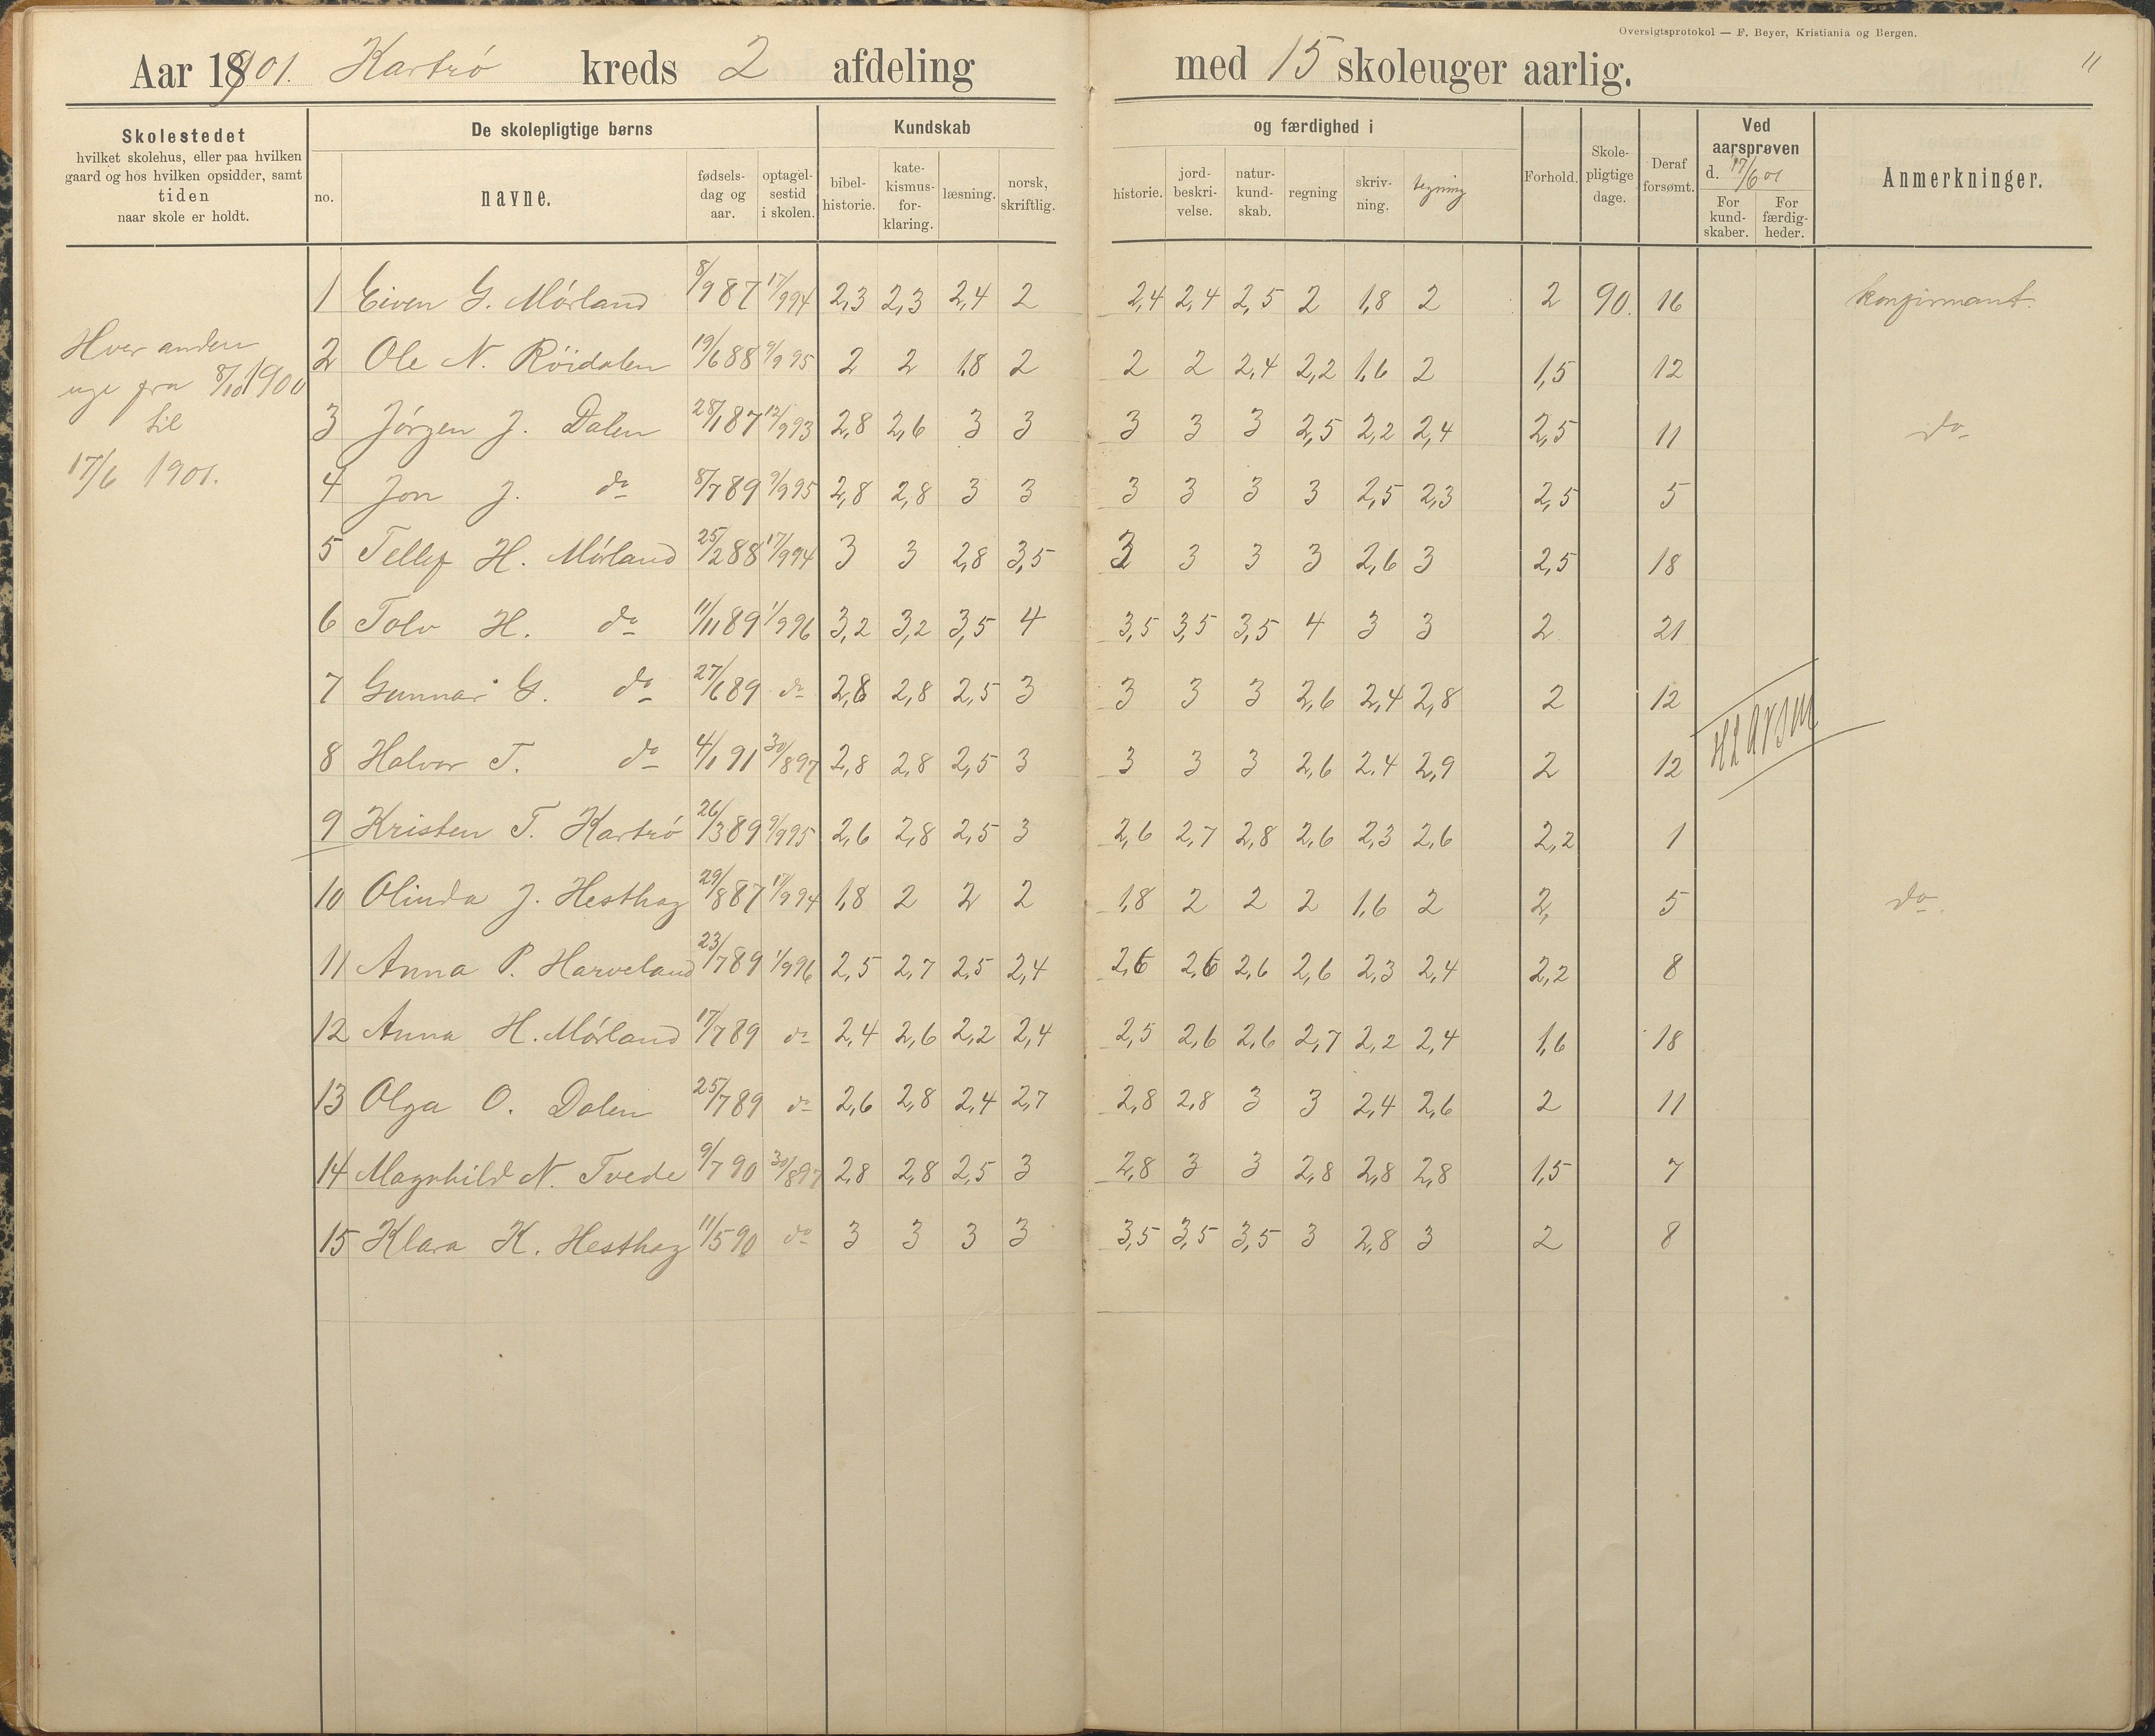 Oversigtsprotokol — F. Beyer, Kristiania og Bergen.
11
Aar 1901. Kartrö kreds 2 afdeling med 15 skoleuger aarlig.
Skolestedet
hvilket skolehus, eller paa hvilken
gaard og hos hvilken opsidder, samt
tiden
naar skole er holdt.
De skolepligtige børns
no.
navne.
fødsels-
dag og
aar.
optagel-
sestid
i skolen.
Kundskab
bibel-
historie.
kate-
kismus-
for-
klaring.
læsning.
norsk,
skriftlig.
og færdighed i
historie.
jord-
beskri-
velse.
natur-
kund-
skab.
regning
skriv-
ning.
tegning
Forhold.
Skole-
pligtige
dage.
Deraf
forsømt.
Ved
aarsprøven
d. 17/6 01
For
kund-
skaber.
For
færdig-
heder.
Anmerkninger.
Hver anden
uge fra 8/10 1900
til
17/6 1901.
1 Eiven G. Mörland 8/9 87 17/9 94 2,3 2,3 2,4 2 2,4 2,4 2,5 2 1,8 2 2 90. 16 konfirmant.
2 Ole N. Röidalen 19/6 88 9/9 95 2 2 1,8 2 2 2 2,4 2,2 1,6 2 1,5 12
3 Jörgen J. Dalen 28/1 87 12/9 93 2,8 2,6 3 3 3 3 3 2,5 2,2 2,4 2,5 11 do
4 Jon J. do 8/7 89 9/9 95 2,8 2,8 3 3 3 3 3 3 2,5 2,3 2,5 5
5 Tellef H. Mörland 25/2 88 17/9 94 3 3 2,8 3,5 3 3 3 3 2,6 3 2,5 18
6 Tolv H. do 11/11 89 1/9 96 3,2 3,2 3,5 4 3,5 3,5 3,5 4 3 3 2 21
7 Gunnar G. do 27/6 89 do 2,8 2,8 2,5 3 3 3 3 2,6 2,4 2,8 2 12
8 Halvor T. do 4/1 91 30/8 97 2,8 2,8 2,5 3 3 3 3 2,6 2,4 2,9 2 12
9 Kristen T. Kartrö 26/3 89 9/9 95 2,6 2,8 2,5 3 2,6 2,7 2,8 2,6 2,3 2,6 2,2 1
10 Olinda J. Hesthag 29/8 87 17/9 94 1,8 2 2 2 1,8 2 2 2 1,6 2 2, 5 do
11 Anna P. Harveland 23/7 89 1/9 96 2,5 2,7 2,5 2,4 2,6 2,6 2,6 2,6 2,3 2,4 2,2 8
12 Anna H. Mörland 17/7 89 do 2,4 2,6 2,2 2,4 2,5 2,6 2,6 2,7 2,2 2,4 1,6 18
13 Olga O. Dalen 25/7 89 do 2,6 2,8 2,4 2,7 2,8 2,8 3 3 2,4 2,6 2 11
14 Magnhild N. Tvede 9/7 90 30/8 97 2,8 2,8 2,5 3 2,8 3 3 2,8 2,8 2,8 1,5 7
15 Klara K. Hesthag 11/5 90 do 3 3 3 3 3,5 3,5 3,5 3 2,8 3 2 8